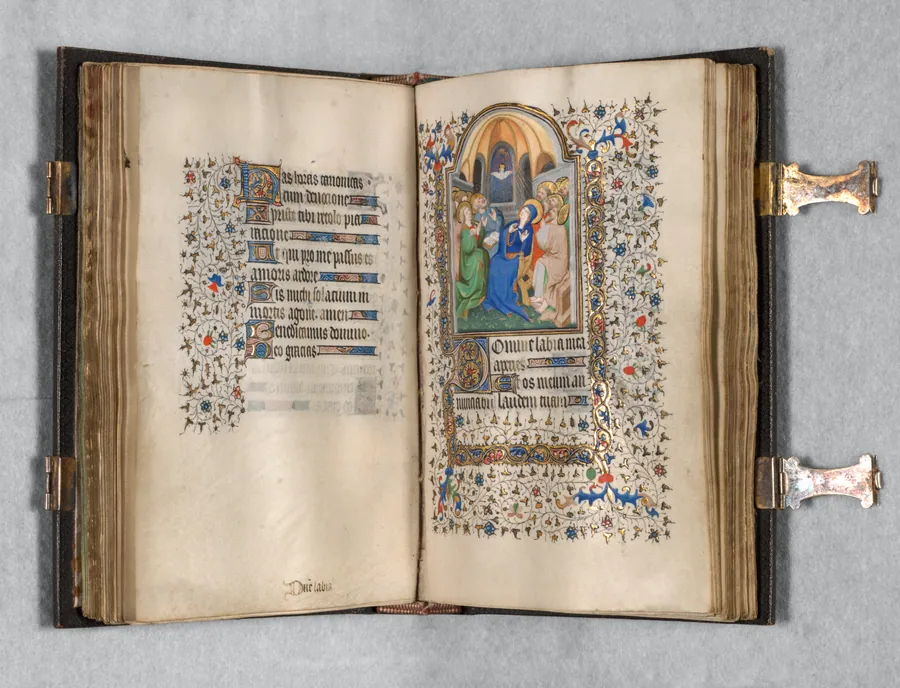 Has horas canonicas
cum deuocione
Xpriste tibi recolo pia
racione
Ut qui pro me passus es
amoris ardore
Sis michi solacium in
mortis agonie. amen
Benedicamus domino
Deo gracias
Dne labia
Domine labia mea
aperies
Et os meum an
nunciabit laudem tuam